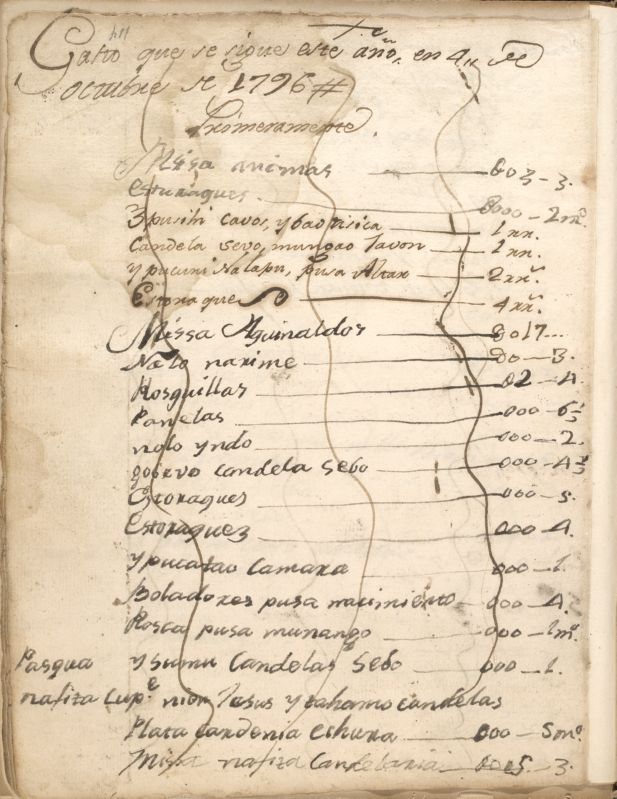 Gasto que se sigue este año, en 4,, de
Octubre de 1796 #
Primeramente,
Missa animas 003-3.
estoraques 8000-2
3 pusin cavos, y bao risica 1 rr.
Candela sevo, mungao Javon 1 rr.
y pucuni Nalapu, pusa Altar 2 rr.
Estoraque 4 rr.
Missa Aguinaldos 8017...
Nalo narime 00-3.
Rosquillas 02-4
Panelas 000-6
nalo yndo 000-2.
goorvo candela sebo 000-4
Estoraques 000-5.
Estoraquez 000-4.
ypucatao Camara 000-1.
Boladores pusa nacimiento 000-4.
Rosca pusa munango 000-1m.
Pasqua ysumu Candelas Sebo 000-1.
nafiza Cup.e nior Jesus y tahamo candelas
Plata cardenia echura 000-5m.
Missa nafiza Candelaria 0005-3.